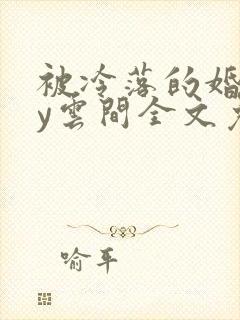 被冷落的婚
y雲間全文
喻平